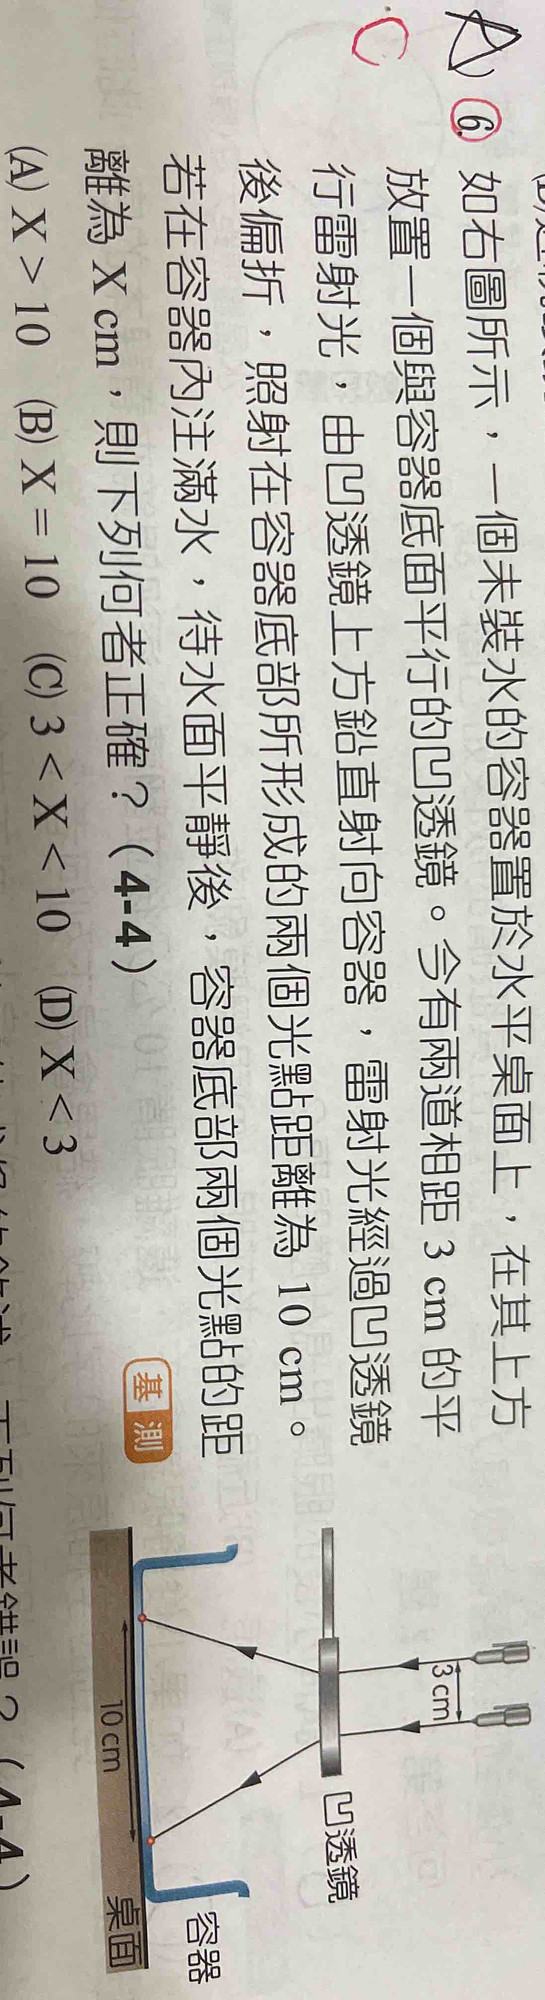 A
C
6. 如右圖所示，一個未裝水的容器置於水平桌面上，在其上方
放置一個與容器底面平行的凹透鏡。今有兩道相距 3 cm 的平
行雷射光，由凹透鏡上方鉛直射向容器，雷射光經過凹透鏡
後偏折，照射在容器底部所形成的兩個光點距離為 10 cm。
若在容器內注滿水，待水面平靜後，容器底部兩個光點的距
離為 X cm，則下列何者正確？（4-4）
基測
(A) X > 10 (B) X = 10 (C) 3 < X < 10 (D) X < 3
3 cm
凹透鏡
容器
10 cm
桌面
下列何者錯誤？（4-4）